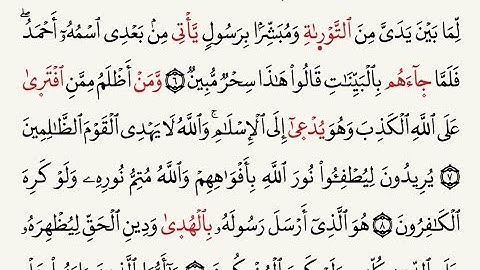 لِّمَا بَيْنَ يَدَىَّ مِنَ ٱلتَّوْرَىٰةِ وَمُبَشِّرًۢا بِرَسُولٍ يَّأْتِى مِنۢ بَعْدِى ٱسْمُهُۥٓ أَحْمَدُۖ
فَلَمَّا جَآءَهُم بِٱلْبَيِّنَٰتِ قَالُوا۟ هَٰذَا سِحْرٌ مُّبِينٌ ٦ وَمَنْ أَظْلَمُ مِمَّنِ ٱفْتَرَىٰ
عَلَى ٱللَّهِ ٱلْكَذِبَ وَهُوَ يُدْعَىٰٓ إِلَى ٱلْإِسْلَٰمِۚ وَٱللَّهُ لَا يَهْدِى ٱلْقَوْمَ ٱلظَّٰلِمِينَ
٧ يُرِيدُونَ لِيُطْفِـُٔوا۟ نُورَ ٱللَّهِ بِأَفْوَٰهِهِمْ وَٱللَّهُ مُتِمُّ نُورِهِۦ وَلَوْ كَرِهَ
ٱلْكَٰفِرُونَ ٨ هُوَ ٱلَّذِىٓ أَرْسَلَ رَسُولَهُۥ بِٱلْهُدَىٰ وَدِينِ ٱلْحَقِّ لِيُظْهِرَهُۥ